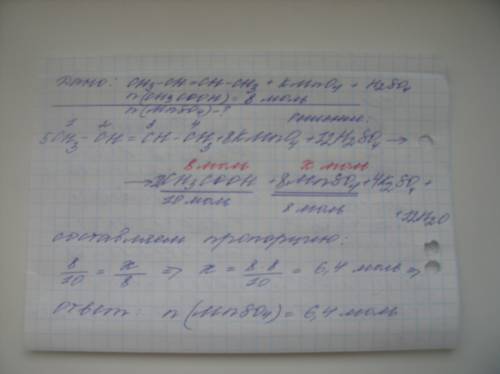 Дано: CH3-CH=CH-CH3 + KMnO4 + H2SO4
n(CH3COOH) = 8 моль
n(MnSO4)-?
решение:
1 2 3 4
5CH3-CH=CH-CH3+8KMnO4+12H2SO4→
8 моль x моль
→10CH3COOH+8MnSO4+4K2SO4+
10 моль 8 моль
+12H2O
составляем пропорцию:
8/10 = x/8 ⇒ x = 8·8/10 = 6,4 моль ⇒
ответ: n(MnSO4) = 6,4 моль